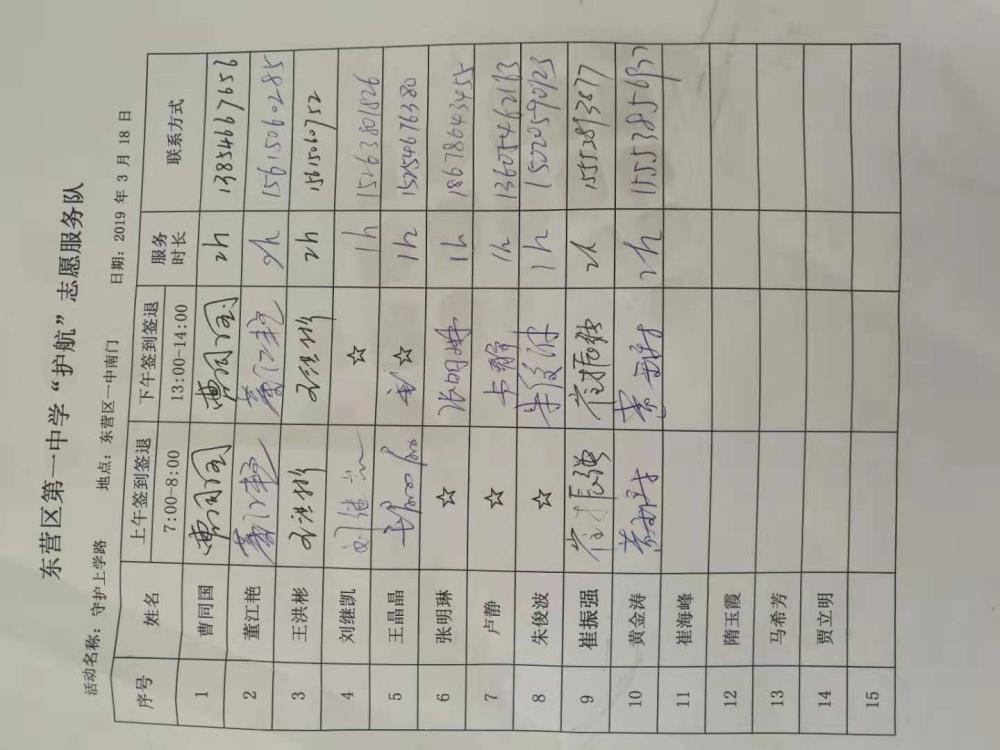 东营区第一中学“护航”志愿服务队
活动名称：守护上学路 地点：东营区一中南门 日期：2019 年 3 月 18 日
序号 姓名 上午签到签退 7:00-8:00 下午签到签退 13:00-14:00 服务时长 联系方式
1 曹同国 曹同国 曹同国 2h 13854667656
2 董江艳 董江艳 董江艳 2h 15615060285
3 王洪彬 王洪彬 王洪彬 2h
4 刘继凯 刘继凯 ☆ 1h 15263801826
5 王晶晶 王晶晶 ☆ 1h 15254676380
6 张明琳 ☆ 张明琳 1h 18678643455
7 卢静 ☆ 卢静 1h 13605462163
8 朱俊波 ☆ 朱俊波 1h
9 崔振强 崔振强 崔振强 2h 15552893877
10 黄金涛 2h
11 崔海峰
12 隋玉霞
13 马希芳
14 贾立明
15